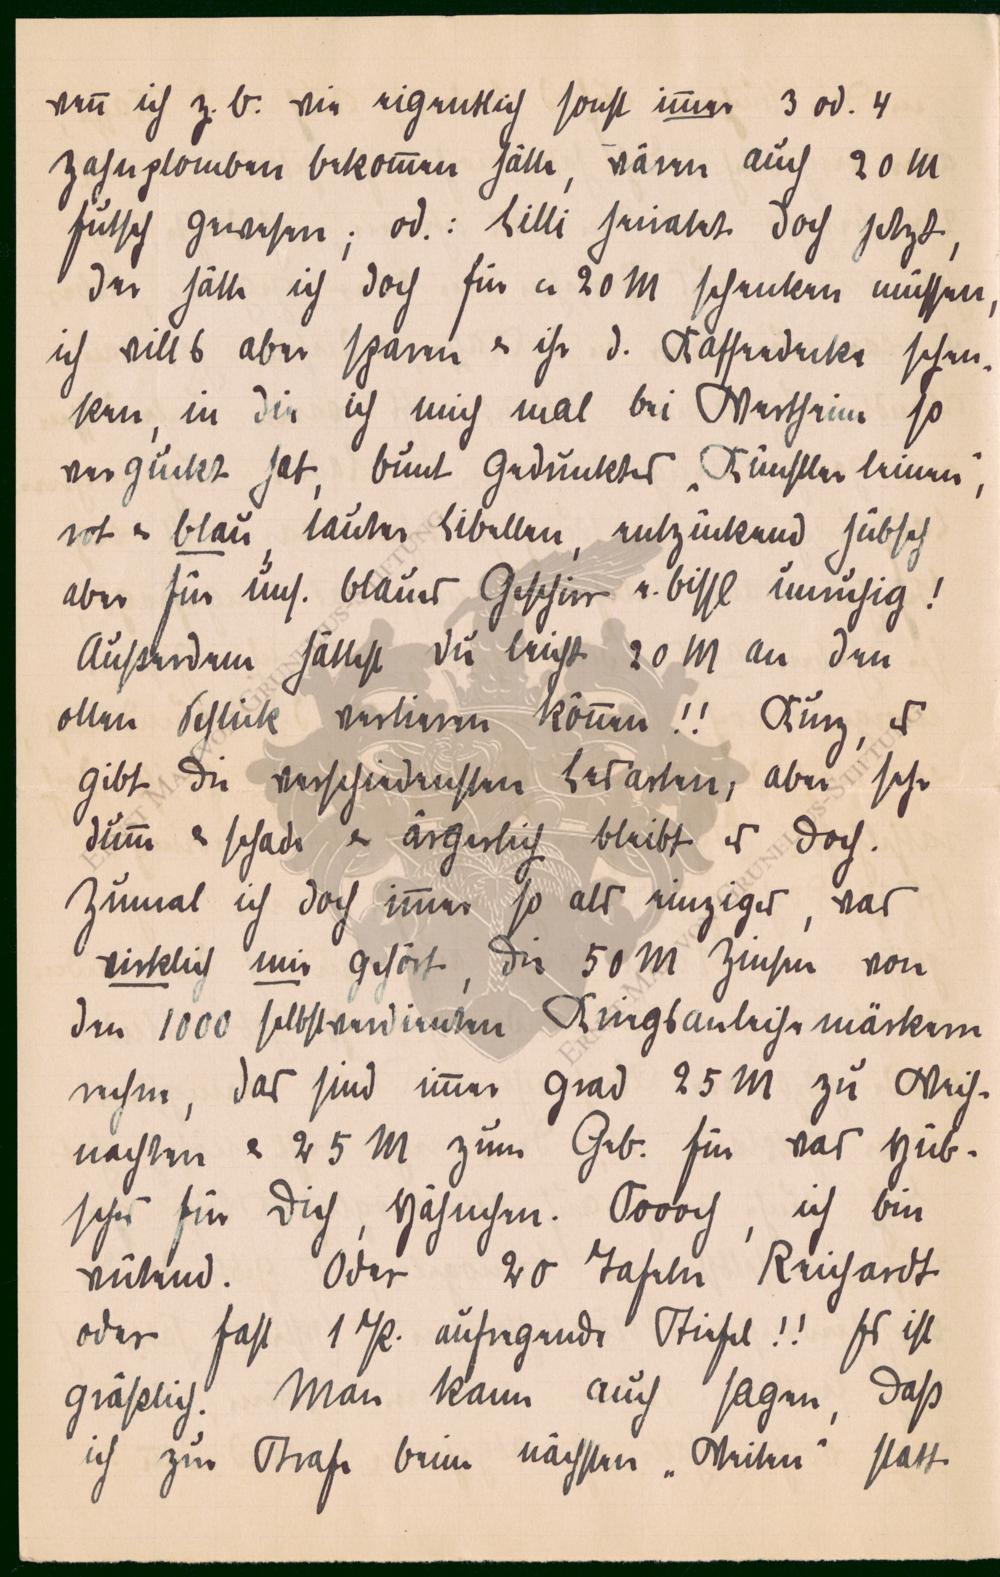 wen̄ ich z. b. wie eigentlich sonst im̄er 3 od. 4
Zahnplomben bekom̄en hätte, wären auch 20 M
futsch gewesen; od.: Lilli heiratet doch jetzt,
der hätte ich doch für 20 M schenken müssen,
ich will's aber sparen & ihr d. Kaffeedecke schen-
ken, in die ich mich mal bei Wertheim so
verguckt hab, bunt gedrucktes „Künstlerleinen",
rot & blau, lauter Libellen, entzückend hübsch
aber für uns. blaues Geschirr e. bissl unruhig!
Außerdem hättest du leicht 20 M an den
ollen Schlick verlieren kön̄en!! Kurz, es
gibt die verschiedensten Lesarten, aber sehr
dum̄ & schade & ärgerlich bleibt es doch.
Zumal ich doch im̄er so als einziges, was
wirklich mir gehört, die 50 M Zinsen von
den 1000 selbstverdienten Kriegsanleihemärkern
rechne, das sind im̄er grad 25 M zu Weih-
nachten & 25 M zum Geb. für was Hüb-
sches für Dich, Hähnchen. Ooooch, ich bin
wütend. Oder 20 Tafeln Reichardt
oder fast 1 P. aufregende Stiefel!! Es ist
gräßlich. Man kann auch sagen, daß
ich zur Strafe beim nächsten „Weiten" statt
ERNST MAX VON GRUNELIUS-STIFTUNG
ERNST MAX VON GRUNELIUS-STIFTUNG